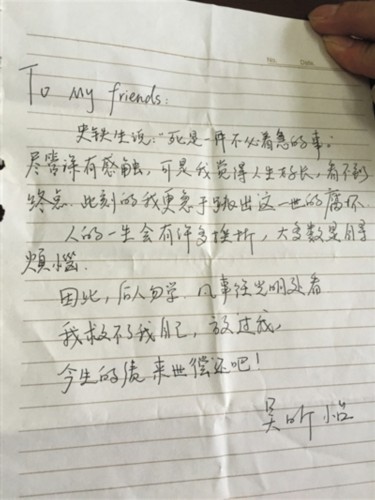 No.    Date.
To My friends:
史铁生说:"死是一件不必着急的事."
尽管深有感触,可是我觉得人生好长,看不到
终点.此刻的我更急于抽出这一世的腐坏.
人的一生会有许多挫折,大多数是自寻
烦惱.
因此,后人勿学.凡事往光明处看
我救不了我自己,放过我,
今生的债来世偿还吧!
吴昕怡